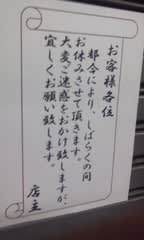 お客様各位
都合により、しばらくの間
お休みさせて頂きます。
大変ご迷惑をおかけ致しますが、
宜しくお願い致します。
店主